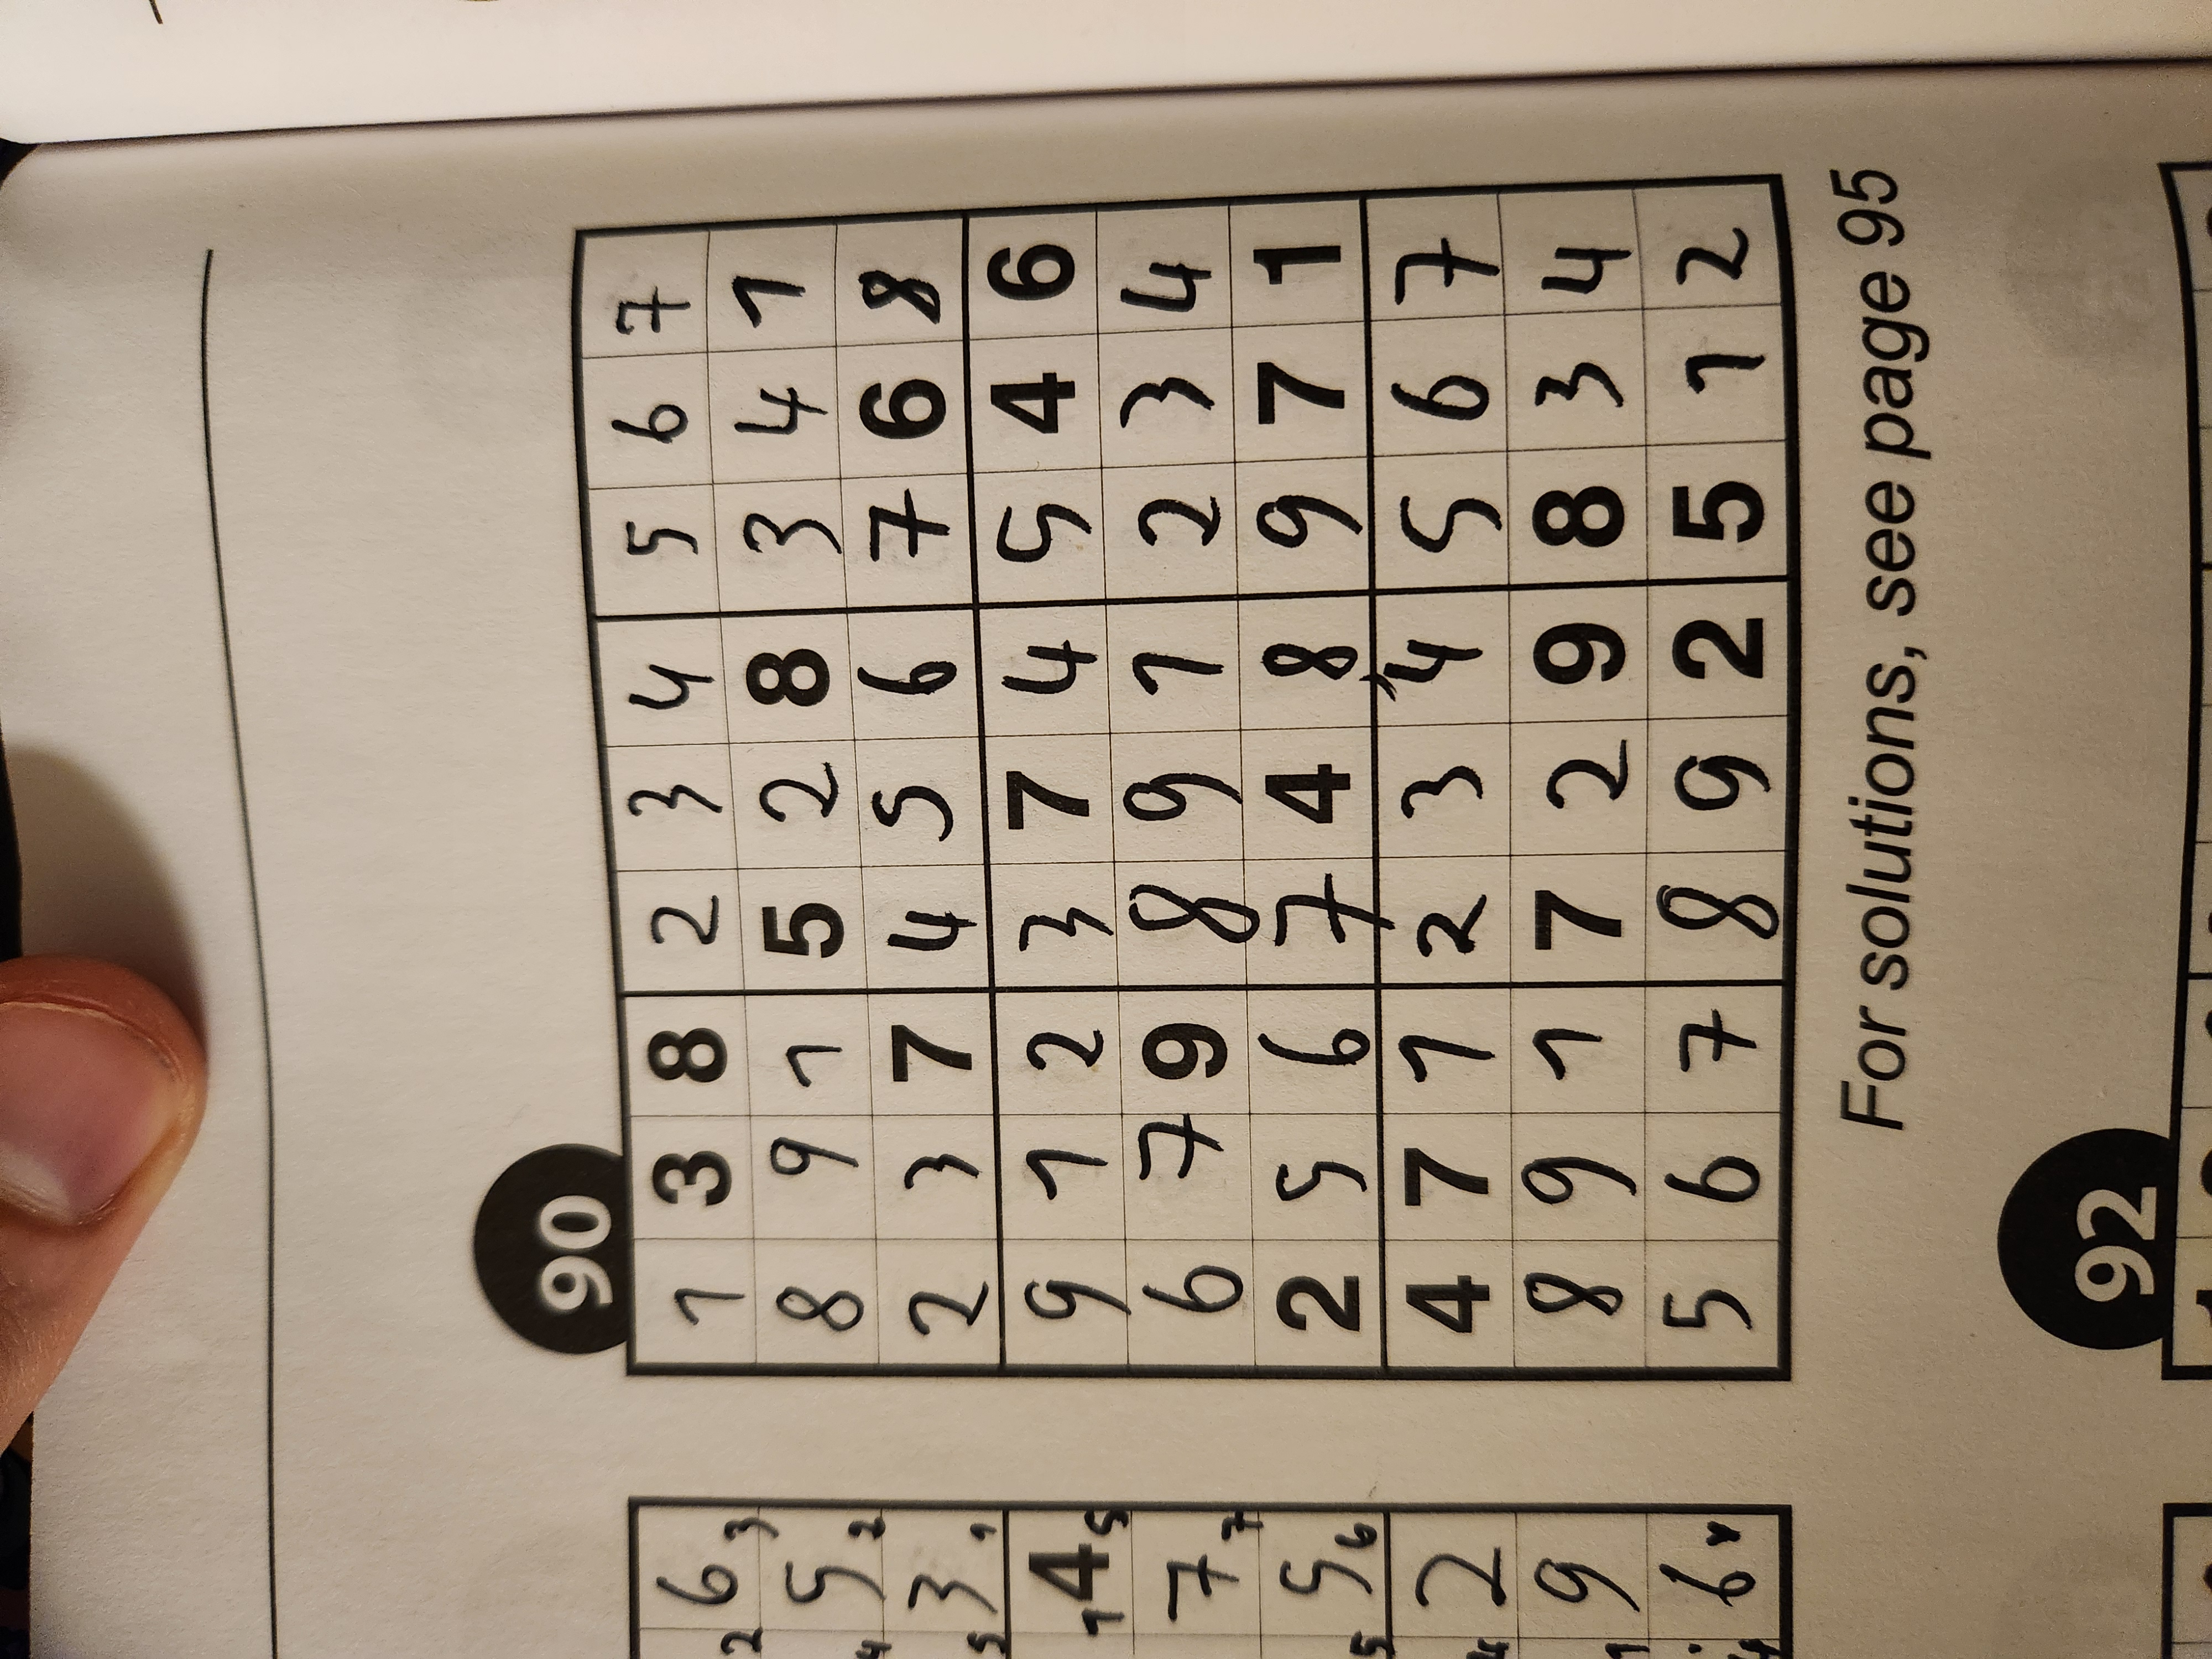 90
6 1 3 8 2 3 4 5 6 7
2 3
5 8 9 1 5 2 8 3 4 1
4 2
3 2 3 7 4 5 6 7 6 8
5 1
4 9 1 2 3 7 4 5 4 6
1 5
7 6 7 9 8 9 1 2 3 4
7
5 2 5 6 7 4 8 9 7 1
5 6
2 4 7 1 2 3 4 5 6 7
4
9 8 9 1 7 2 9 8 3 4
1
6 5 6 7 8 9 2 5 1 2
4
For solutions, see page 95
92